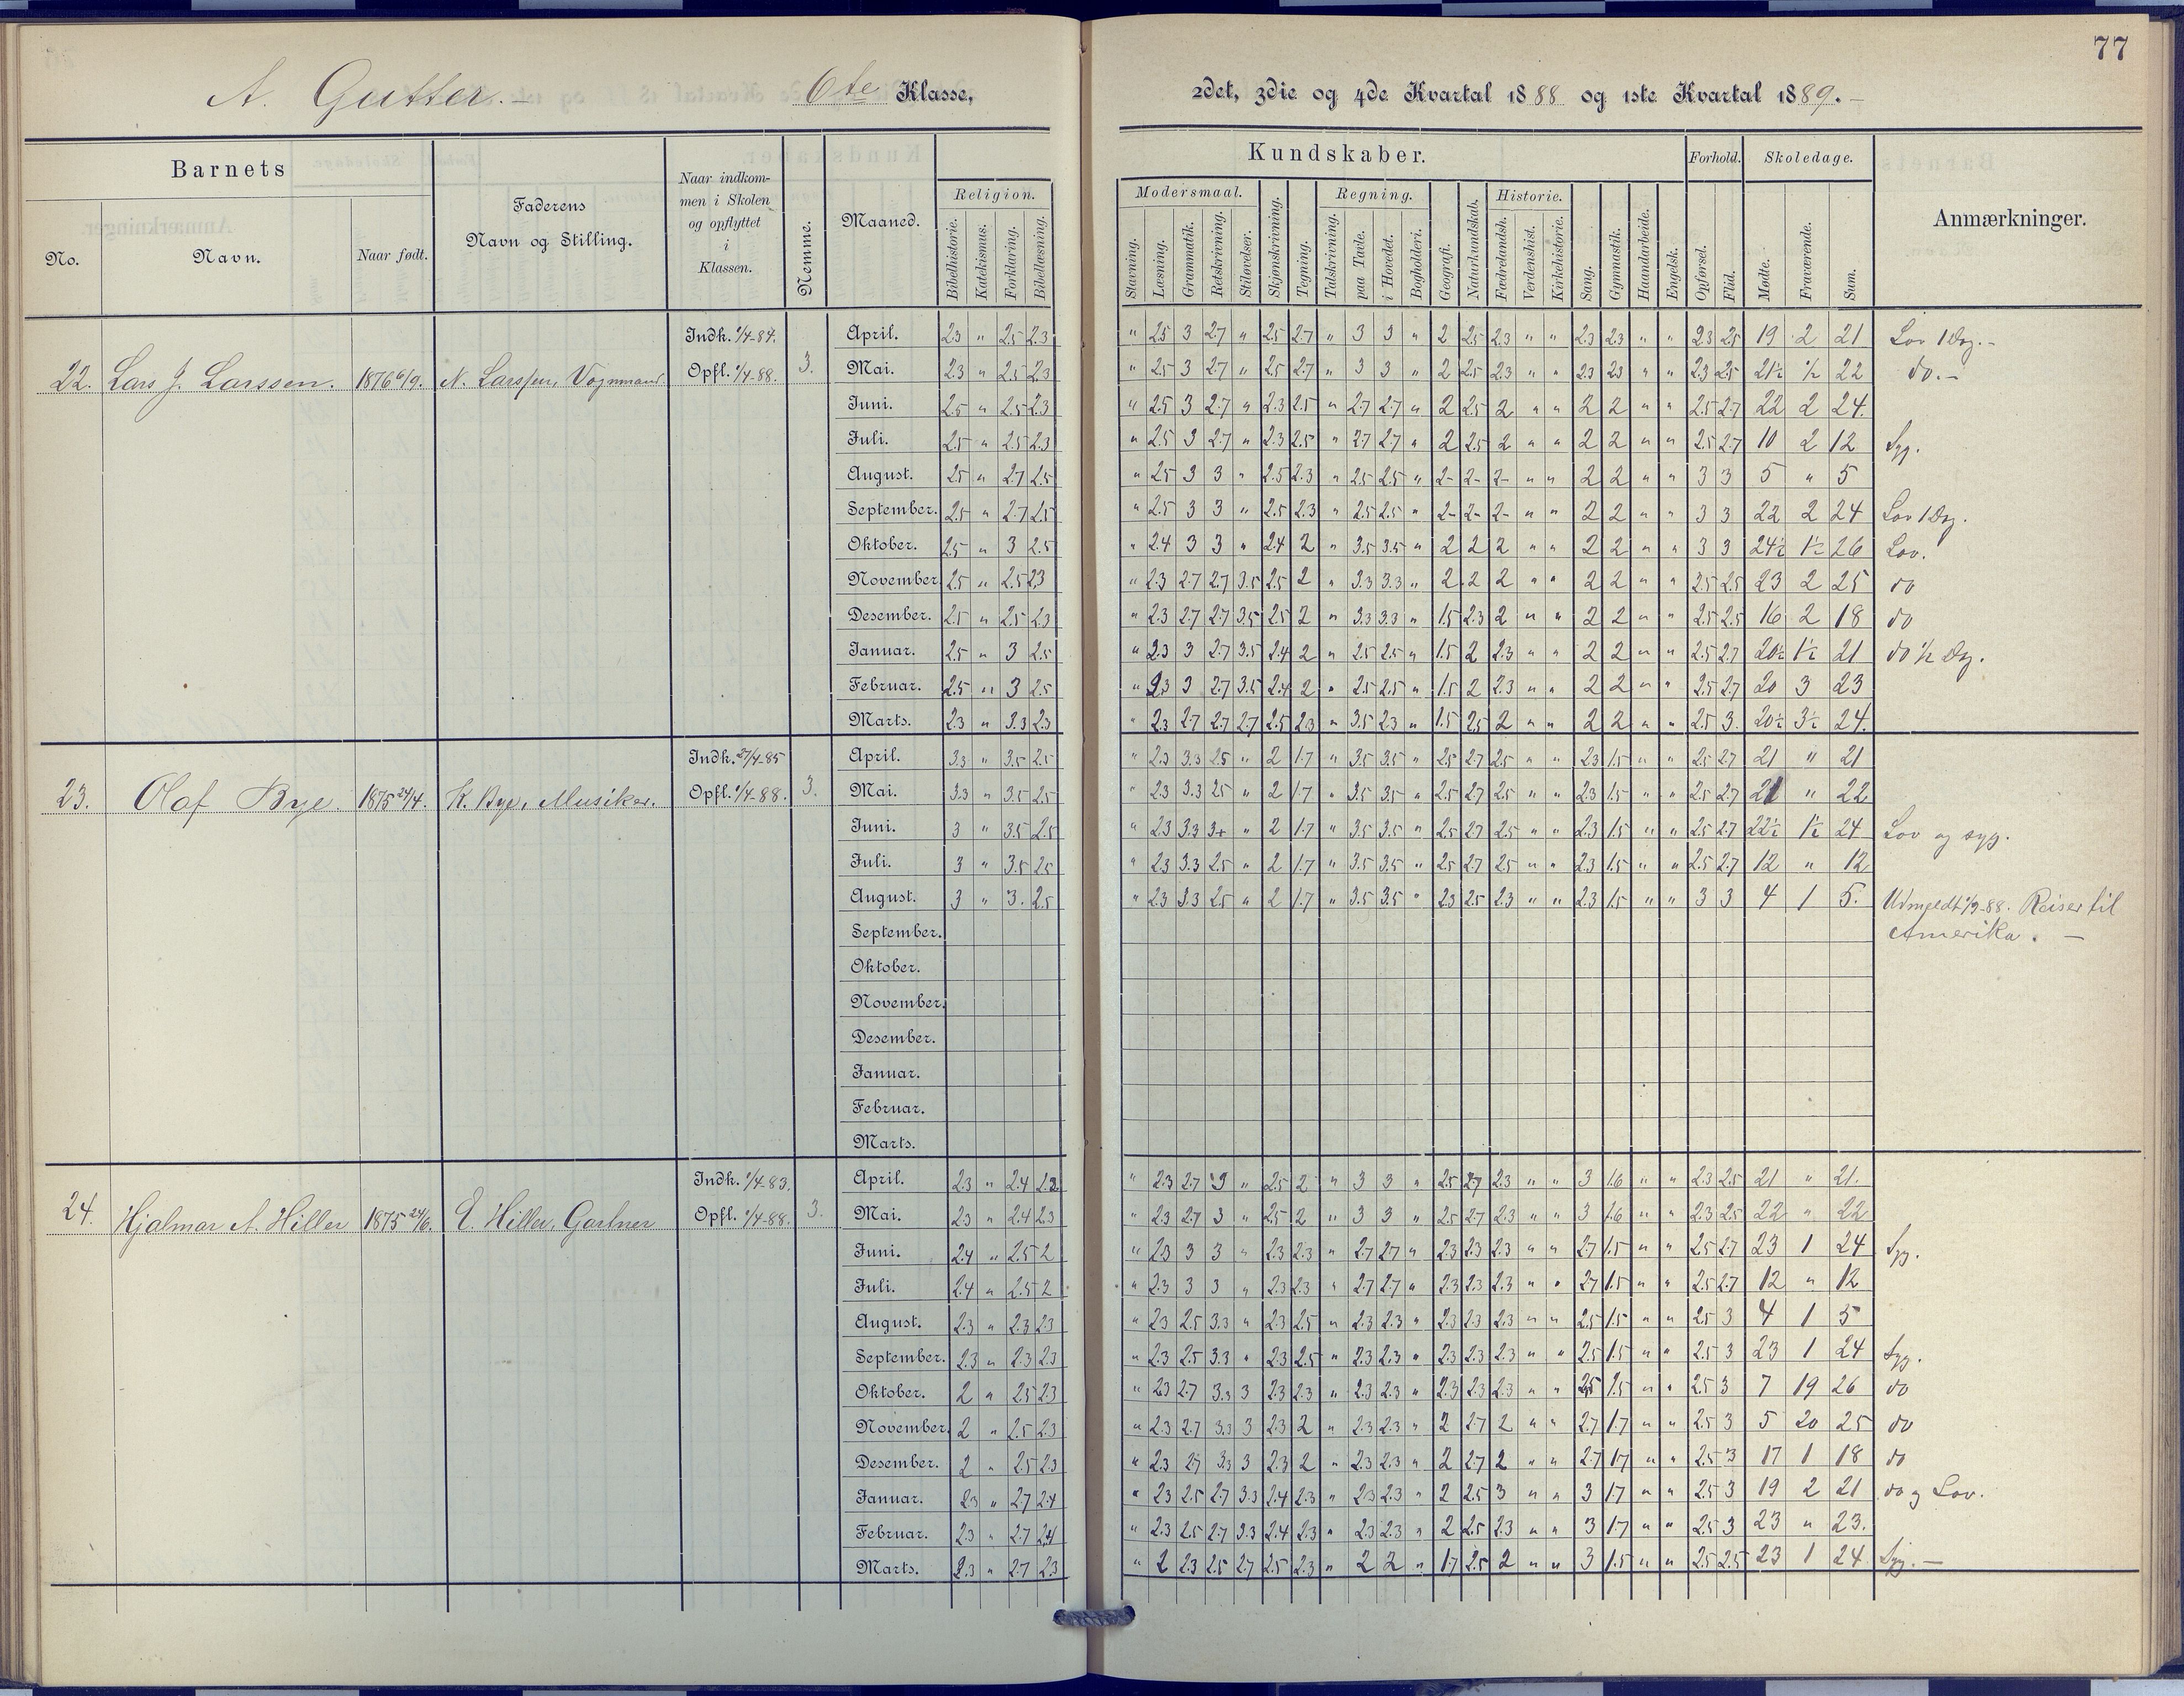 77
A. Gutter. – 6te Klasse, 2det, 3die og 4de Kvartal 1888 og 1ste Kvartal 1889. –
Barnets Kundskaber. Forhold. Skoledage.
No. Navn. Naar født. Faderens Navn og Stilling. Naar indkommen i Skolen og opflyttet i Klassen. Nemme. Maaned. Religion. Modersmaal. Regning. Historie. Anmærkninger.
Bibelhistorie. Katekismus. Forklaring. Bibellæsning. Stavning. Læsning. Grammatik. Retskrivning. Stiløvelser. Skjønskrivning. Tegning. Talskrivning. paa Tavle. i Hovedet. Bogholderi. Geografi. Naturkundskab. Fædrelandsh. Verdenshist. Kirkehistorie. Sang. Gymnastik. Haandarbeide. Engelsk. Opførsel. Flid. Mødte. Fraværende. Sum.
Indk. 1/4-84. April. 2.3 " 2.5 2.3 " 2.5 3 2.7 " 2.5 2.7 " 3 3 " 2 2.5 2.3 " " 2.3 2.3 " " 2.3 2.5 19 2 21 Lov 1 Dag. –
22. Lars J. Larssen. 1876 6/9. N. Larssen, Vognmand Opfl. 1/4-88. 3. Mai. 2.3 " 2.5 2.3 " 2.5 3 2.7 " 2.5 2.7 " 3 3 " 2 2.5 2.3 " " 2.3 2.3 " " 2.3 2.5 21½ ½ 22 do. –
Juni. 2.5 " 2.5 2.3 " 2.5 3 2.7 " 2.3 2.5 " 2.7 2.7 " 2 2.5 2 " " 2 2 " " 2.5 2.7 22 2 24.
Juli. 2.5 " 2.5 2.3 " 2.5 3 2.7 " 2.3 2.5 " 2.7 2.7 " 2 2.5 2 " " 2 2 " " 2.5 2.7 10 2 12 Syg.
August. 2.5 " 2.7 2.5 " 2.5 3 3 " 2.5 2.3 " 2.5 2.5 " 2- 2- 2- " " 2 2 " " 3 3 5 " 5
September. 2.5 " 2.7 2.5 " 2.5 3 3 " 2.5 2.3 " 2.5 2.5 " 2- 2- 2- " " 2 2 " " 3 3 22 2 24 Lov 1 Dag.
Oktober. 2.5 " 3 2.5 " 2.4 3 3 " 2.4 2 " 3.5 3.5 " 2 2 2 " " 2 2 " " 3 3 24½ 1½ 26 Lov.
November. 2.5 " 2.5 2.3 " 2.3 2.7 2.7 3.5 2.5 2 " 3.3 3.3 " 2 2 2 " " 2 2 " " 2.5 2.5 23 2 25 do
Desember. 2.5 " 2.5 2.3 " 2.3 2.7 2.7 3.5 2.5 2 " 3.3 3.3 " 1.5 2.3 2 " " 2 2 " " 2.5 2.5 16 2 18 do
Januar. 2.5 " 3 2.5 " 2.3 3 2.7 3.5 2.4 2 " 2.5 2.5 " 1.5 2 2.3 " " 2 2 " " 2.5 2.7 20½ 1½ 21 do ½ Dag.
Februar. 2.5 " 3 2.5 " 2.3 3 2.7 3.5 2.4 2 " 2.5 2.5 " 1.5 2 2.3 " " 2 2 " " 2.5 2.7 20 3 23
Marts. 2.3 " 3.3 2.3 " 2.3 2.7 2.7 2.7 2.5 2.3 " 3.5 2.3 " 1.5 2.5 2 " " 2 2 " " 2.5 3. 20½ 3½ 24.
Indk. 27/4-85 April. 3.3 " 3.5 2.5 " 2.3 3.3 2.5 " 2 1.7 " 3.5 3.5 " 2.5 2.7 2.5 " " 2.3 1.5 " " 2.5 2.7 21 " 21
23. Olaf Bye. 1875 24/4. K. Bye, Musiker. Opfl. 1/4-88. 3. Mai. 3.3 " 3.5 2.5 " 2.3 3.3 2.5 " 2 1.7 " 3.5 3.5 " 2.5 2.7 2.5 " " 2.3 1.5 " " 2.5 2.7 " 22
Juni. 3 " 3.5 2.5 " 2.3 3.3 3+ " 2 1.7 " 3.5 3.5 " 2.5 2.7 2.5 " " 2.3 1.5 " " 2.5 2.7 22½ 1½ 24 Lov og syg.
Juli. 3 " 3.5 2.5 " 2.3 3.3 2.5 " 2 1.7 " 3.5 3.5 " 2.5 2.7 2.5 " " 2.3 1.5 " " 2.5 2.7 12 " 12
August. 3 " 3. 2.5 " 2.3 3.3 2.5 " 2 1.7 " 3.5 3.5 " 2.3 2.5 2.3 " " 2.3 1.5 " " 3 3 4 1 5. Udmeldt 1/9-88. Reiser til
September. Amerika. –
Oktober.
November.
Desember.
Januar.
Februar.
Marts.
Indk. 1/4-83. April. 2.3 " 2.4 2.3 " 2.3 2.7 3 " 2.5 2 " 3 3 " 2.5 2.7 2.3 " " 3 1.6 " " 2.3 2.5 21 " 21.
24. Hjalmar A. Hiller 1875 24/6. E. Hiller, Gartner Opfl. 1/4-88. 3. Mai. 2.3 " 2.4 2.3 " 2.3 2.7 3 " 2.5 2 " 3 3 " 2.5 2.7 2.3 " " 3 1.6 " " 2.3 2.5 22 " 22
Juni. 2.4 " 2.5 2 " 2.3 3 3 " 2.3 2.3 " 2.7 2.7 " 2.3 2.3 2.3 " " 2.7 1.5 " " 2.5 2.7 23 1 24 Syg.
Juli. 2.4 " 2.5 2 " 2.3 3 3 " 2.3 2.3 " 2.7 2.7 " 2.3 2.3 2.3 " " 2.7 1.5 " " 2.5 2.7 12 " 12
August. 2.3 " 2.3 2.3 " 2.3 2.5 3.3 " 2.3 2.5 " 2.3 2.3 " 2.3 2.3 2.3 " " 2.5 1.5 " " 2.5 3 4 1 5
September. 2.3 " 2.3 2.3 " 2.3 2.5 3.3 " 2.3 2.5 " 2.3 2.3 " 2.3 2.3 2.3 " " 2.5 1.5 " " 2.5 3 23 1 24 Syg.
Oktober. 2 " 2.5 2.3 " 2.3 2.7 3.3 3 2.3 2.3 " 2.3 2.3 " 2.3 2.3 2.3 " " 2.5 1.5 " " 2.5 3 7 19 26 do
November. 2 " 2.5 2.3 " 2.3 2.7 3.3 3 2.3 2 " 2.3 2.3 " 2 2.7 2 " " 2.7 1.7 " " 2.5 3 5 20 25 do
Desember. 2 " 2.5 2.3 " 2.3 2.7 3.3 3 2.3 2 " 2.3 2.3 " 2 2.7 2 " " 2.7 1.7 " " 2.5 3 17 1 18 do
Januar. 2.3 " 2.7 2.4 " 2.3 2.5 2.7 3.3 2.4 2.3 " 2.3 2.3 " 2 2.5 3 " " 3 1.7 " " 2.5 3 19 2 21 do og Lov.
Februar. 2.3 " 2.7 2.4 " 2.3 2.5 2.7 3.3 2.4 2.3 " 2.3 2.3 " 2 2.5 2.3 " " 3 1.7 " " 2.5 3 23 " 23.
Marts. 2.3 " 2.7 2.3 " 2 2.3 2.5 2.7 2.5 2.3 " 2 2 " 1.7 2.5 2 " " 3 1.5 " " 2.5 2.5 23 1 24 Syg. –